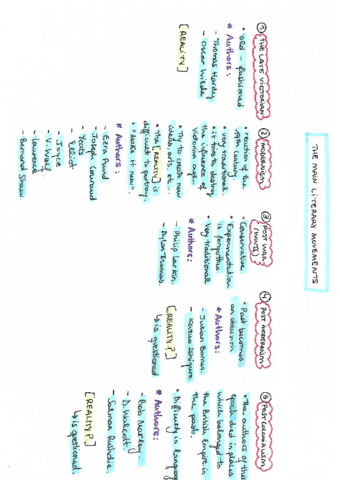 THE MAIN LITERARY MOVEMENTS
① THE LATE VICTORIAN
• "OLD-fashioned
* Authors:
- Thomas Hardy
- Oscar Wilde
[REALITY]
② MODERNISM
• reaction of the
19th century
• very transitional
• it tries to destroy
the influence of
Victorian age.
• Try to create new
ideas, arts, etc...
• The [REALITY] is
difficult to portray.
• "Make it new"
* Authors:
- Ezra Pound
- Joseph Conrad
- Yeats
- Elliot
- Joyce
- V. Woolf
- Lawrence
- Bernard Shaw
③ POST WAR
(WWII)
• Conservative
• Experimentation
is forgotten
• Very traditional
* Authors:
- Philip Larkin.
- Dylan Thomas.
④ POST MODERNISM
• Past becomes
an obsession
* Authors:
- Julian Barnes.
- Kazuo Ishiguro.
[REALITY?]
↳ is questioned
⑤ POSTCOLONIALISM
• The authors of this
epoch died in places
which belonged to
the British Empire in
the past.
• Difficulty in language
* Authors:
- Bob Marley.
- D. Walcott.
- Salman Rushdie.
[REALITY?]
↳ is questioned.